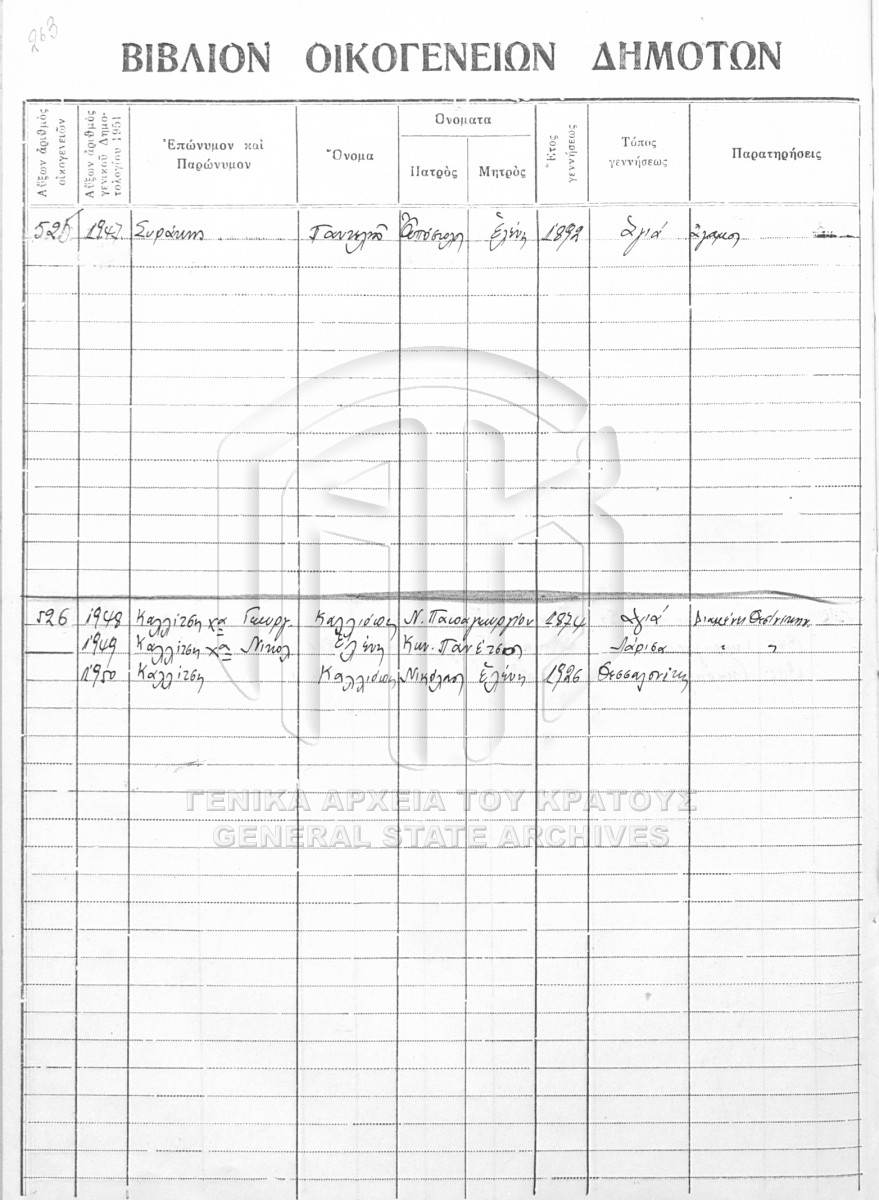 263
ΒΙΒΛΙΟΝ ΟΙΚΟΓΕΝΕΙΩΝ ΔΗΜΟΤΩΝ
Αὔξων ἀριθμὸς οἰκογενειῶν
Αὔξων ἀριθμὸς γενικοῦ Δημοτολογίου 1951
Ἐπώνυμον καὶ Παρώνυμον
Ὄνομα
Ὀνόματα
Πατρὸς
Μητρὸς
Ἔτος γεννήσεως
Τόπος γεννήσεως
Παρατηρήσεις
525 1947 Συράκης Παντελῆς Ἀπόστολ Ἑλένη 1892 Ἁγιά Ἄγαμος
526 1948 Καλλίτση χα Γεωργ. Καλλιόπη Ν. Παπαγεωργίου 1874 Ἁγιά Διαμένει Θεσ/νίκην
1949 Καλλίτση χα Νικολ Ἑλένη Κων. Λάρισα " "
1950 Καλλίτση Καλλιόπη Νικόλαος Ἑλένη 1926 Θεσσαλονίκη
ΓΕΝΙΚΑ ΑΡΧΕΙΑ ΤΟΥ ΚΡΑΤΟΥΣ
GENERAL STATE ARCHIVES